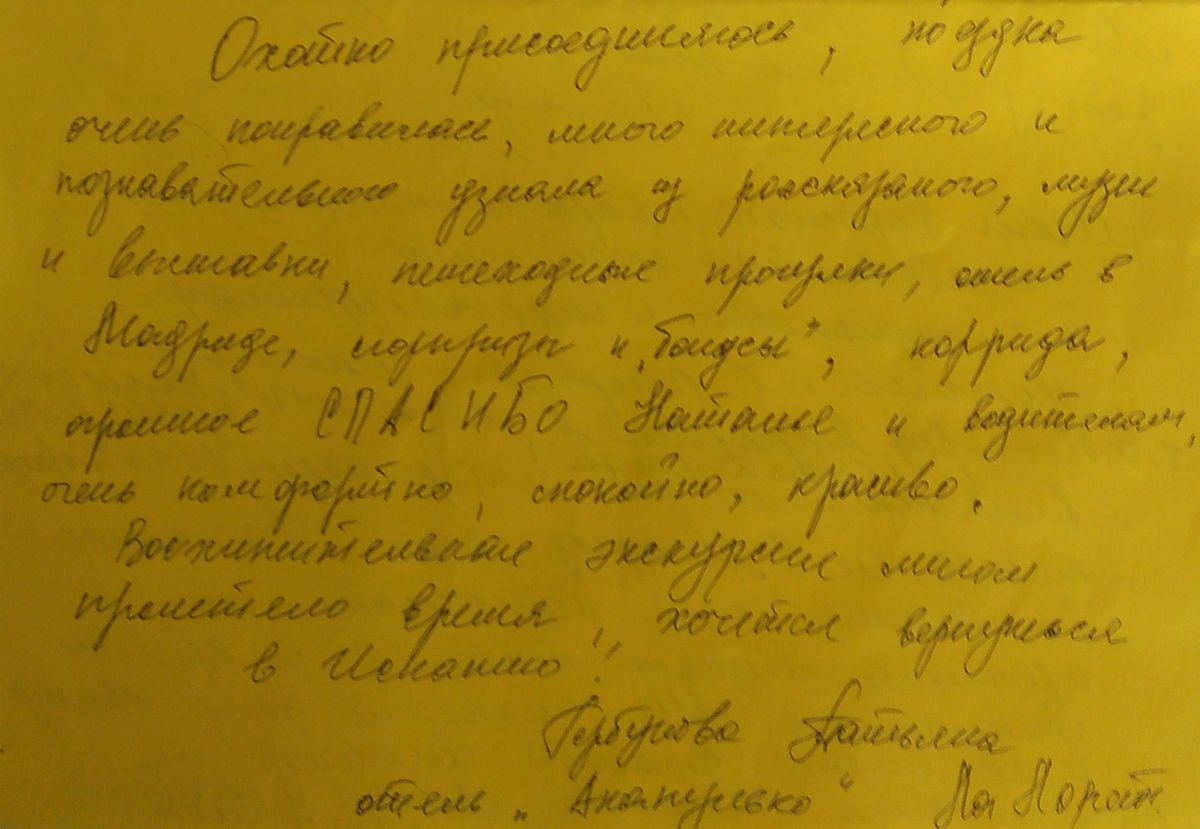 Охотно присоединяюсь, поездка
очень понравилась, много интересного и
познавательного узнала из рассказаного, музеи
и выставки, пешеходные прогулки, отель в
Мадриде, сюрпризы и, коррида,
огромное СПАСИБО Наталье и водителям,
очень комфортно, спокойно, красиво.
Восхитительная экскурсия мигом
пролетело время, хочется вернуться
в Испанию!
Горбунова Татьяна
отель „Акапулько“ Ла